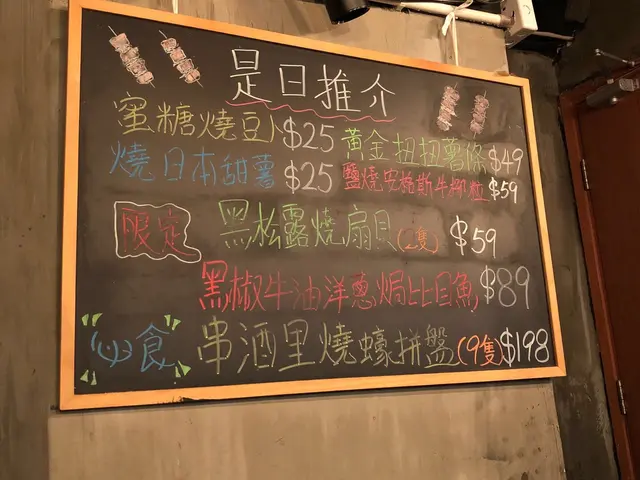 是日推介
蜜糖燒豆卜 $25
黃金扭扭薯條 $49
燒日本甜薯 $25
鹽燒安格斯牛柳粒 $59
限定 黑松露燒扇貝(2隻) $59
黑椒牛油洋蔥焗比目魚 $89
必食 串酒里燒蠔拼盤(9隻) $198